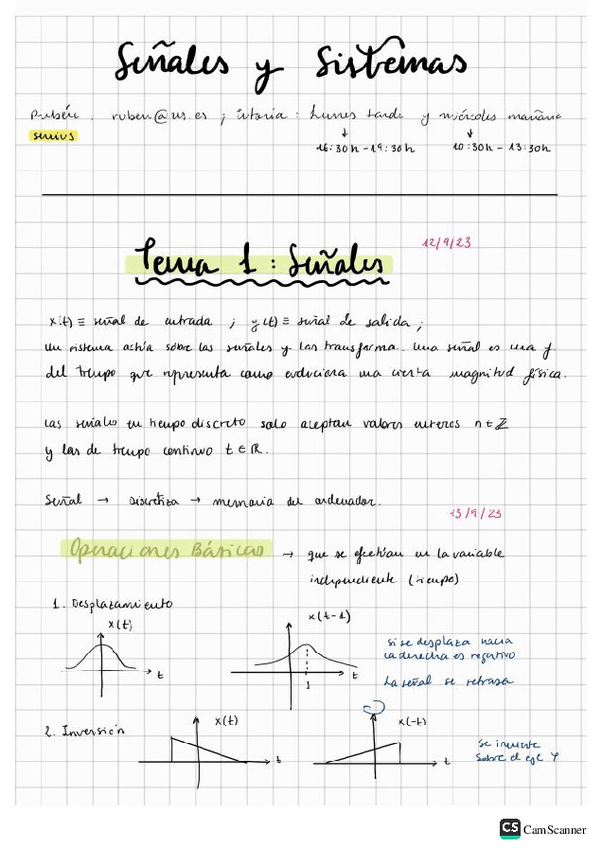 Señales y Sistemas
Rubén. ruben@us.es ; tutoria: Lunes tarde y miércoles mañana
16:30h - 19:30h 10:30h - 13:30h
12/9/23
Tema 1: Señales
x(t) ≡ señal de entrada ; y(t) ≡ señal de salida ;
Un sistema actúa sobre las señales y las transforma. Una señal es una f
del tiempo que representa como evoluciona una cierta magnitud física.
Las señales en tiempo discreto solo aceptan valores enteros n ∈ ℤ
y las de tiempo continuo t ∈ ℝ.
Señal → Discretiza → memoria del ordenador.
13/9/23
Operaciones Básicas → que se efectúan en la variable
independiente (tiempo)
1. Desplazamiento
x(t)
t
x(t-1)
1
t
si se desplaza hacia
la derecha es negativo
La señal se retrasa
2. Inversión
x(t)
t
x(-t)
t
se invierte
sobre el eje Y
CS CamScanner